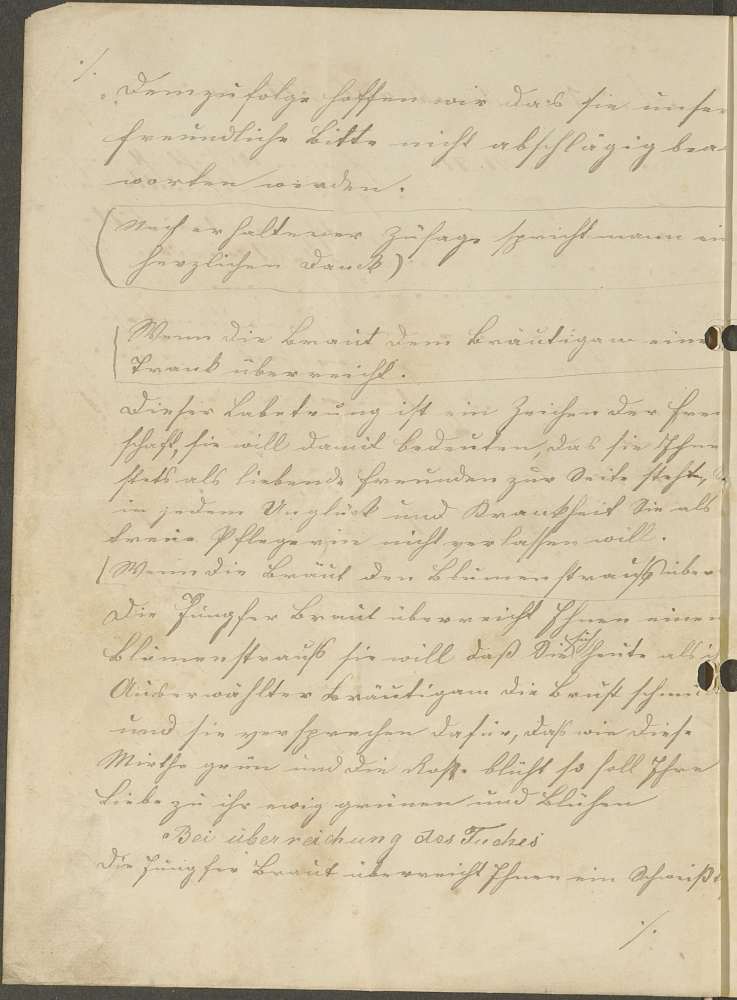 ./.
Demzufolge hoffen wir das sie unse
freundliche Bitte nicht abschlägig bea
worten werden.
(Nach erhaltener Zusage spricht mann ein
herzlichen Dank)
Wenn die Braut dem Bräutigam eine
Trank überreicht.
Dieser Labetrung ist ein Zeichen der freu
schaft, sie will damit bedeuten, das sie Ihne
stets als liebende freunden zur Seite steht,
in jedem Unglück und Krankheit Sie als
treue Pflegerin nicht verlassen will.
Wenn die Bräut den Blumenstrauß über
Die Jungfer Braut überreicht Ihnen einen
Blumenstrauß sie will daß Sie sich heute als i
Auserwählter Bräutigam die Brust schmü
und sie versprechen dafür, daß wie diese
Mirthe grün und die Rose blüht so soll Ihre
Liebe zu ihr ewig grünen und Blühen
Bei überreichung des Tuches
Die Jungfer Braut überreicht Ihnen ein Schweißt
./.